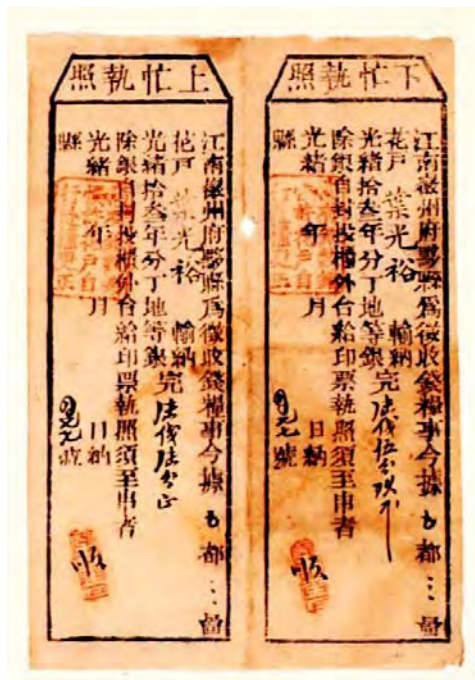 下忙執照
江南徽州府黟縣爲徵收錢糧事今據 五都三啚
花戶 葉光裕 輸納
光緒拾叁年分丁地等銀完
除銀自封投櫃外合給印票執照須至串者
光緒 年 月 日納
縣 號
順
上忙執照
江南徽州府黟縣爲徵收錢糧事今據 五都三啚
花戶 葉光裕 輸納
光緒拾叁年分丁地等銀完
除銀自封投櫃外合給印票執照須至串者
光緒 年 月 日納
縣 號
順